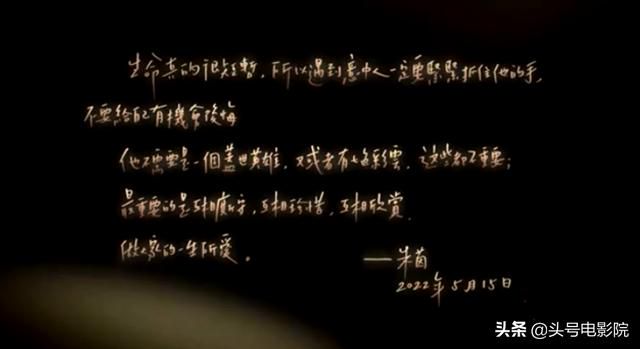 生命真的很短暫，所以遇到意中人一定要緊緊抓住他的手，
不要給自己有機會後悔
他不需要是一個蓋世英雄，又或者有七色彩雲，這些都不重要；
最重要的是互相廝守，互相珍惜，互相欣賞
做人家的一生所愛。
——朱茵
2022年5月15日
头条 @头号电影院